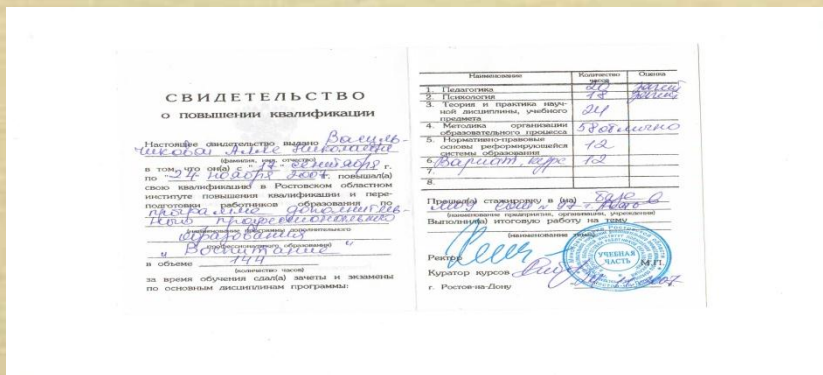 СВИДЕТЕЛЬСТВО
о повышении квалификации
Настоящее свидетельство выдано Василь-
чиковой Алле Николаевне
(фамилия, имя, отчество)
в том, что он(а) с "17" сентября г.
по "24" ноября 2007. повышал(а)
свою квалификацию в Ростовском областном
институте повышения квалификации и пере-
подготовки работников образования по
программе дополнитель-
ного профессионального
(наименование программы дополнительного
образования
профессионального образования)
"Воспитание"
в объеме 144
(количество часов)
за время обучения сдал(а) зачеты и экзамены
по основным дисциплинам программы:
Наименование Количество часов Оценка
1. Педагогика 20 зачет
2. Психология 18 зачет
3. Теория и практика науч-
ной дисциплины, учебного
предмета 24
4. Методика организации
образовательного процесса 58 отлично
5. Нормативно-правовые
основы реформирующейся
системы образования 12
6. Вариат. курс 12
7.
8.
Прошел(а) стажировку в (на)
(наименование предприятия, организации, учреждения)
Выполнил(а) итоговую работу на тему
(наименование темы)
Ректор
М.П.
УЧЕБНАЯ
ЧАСТЬ
Куратор курсов
г. Ростов-на-Дону 2007